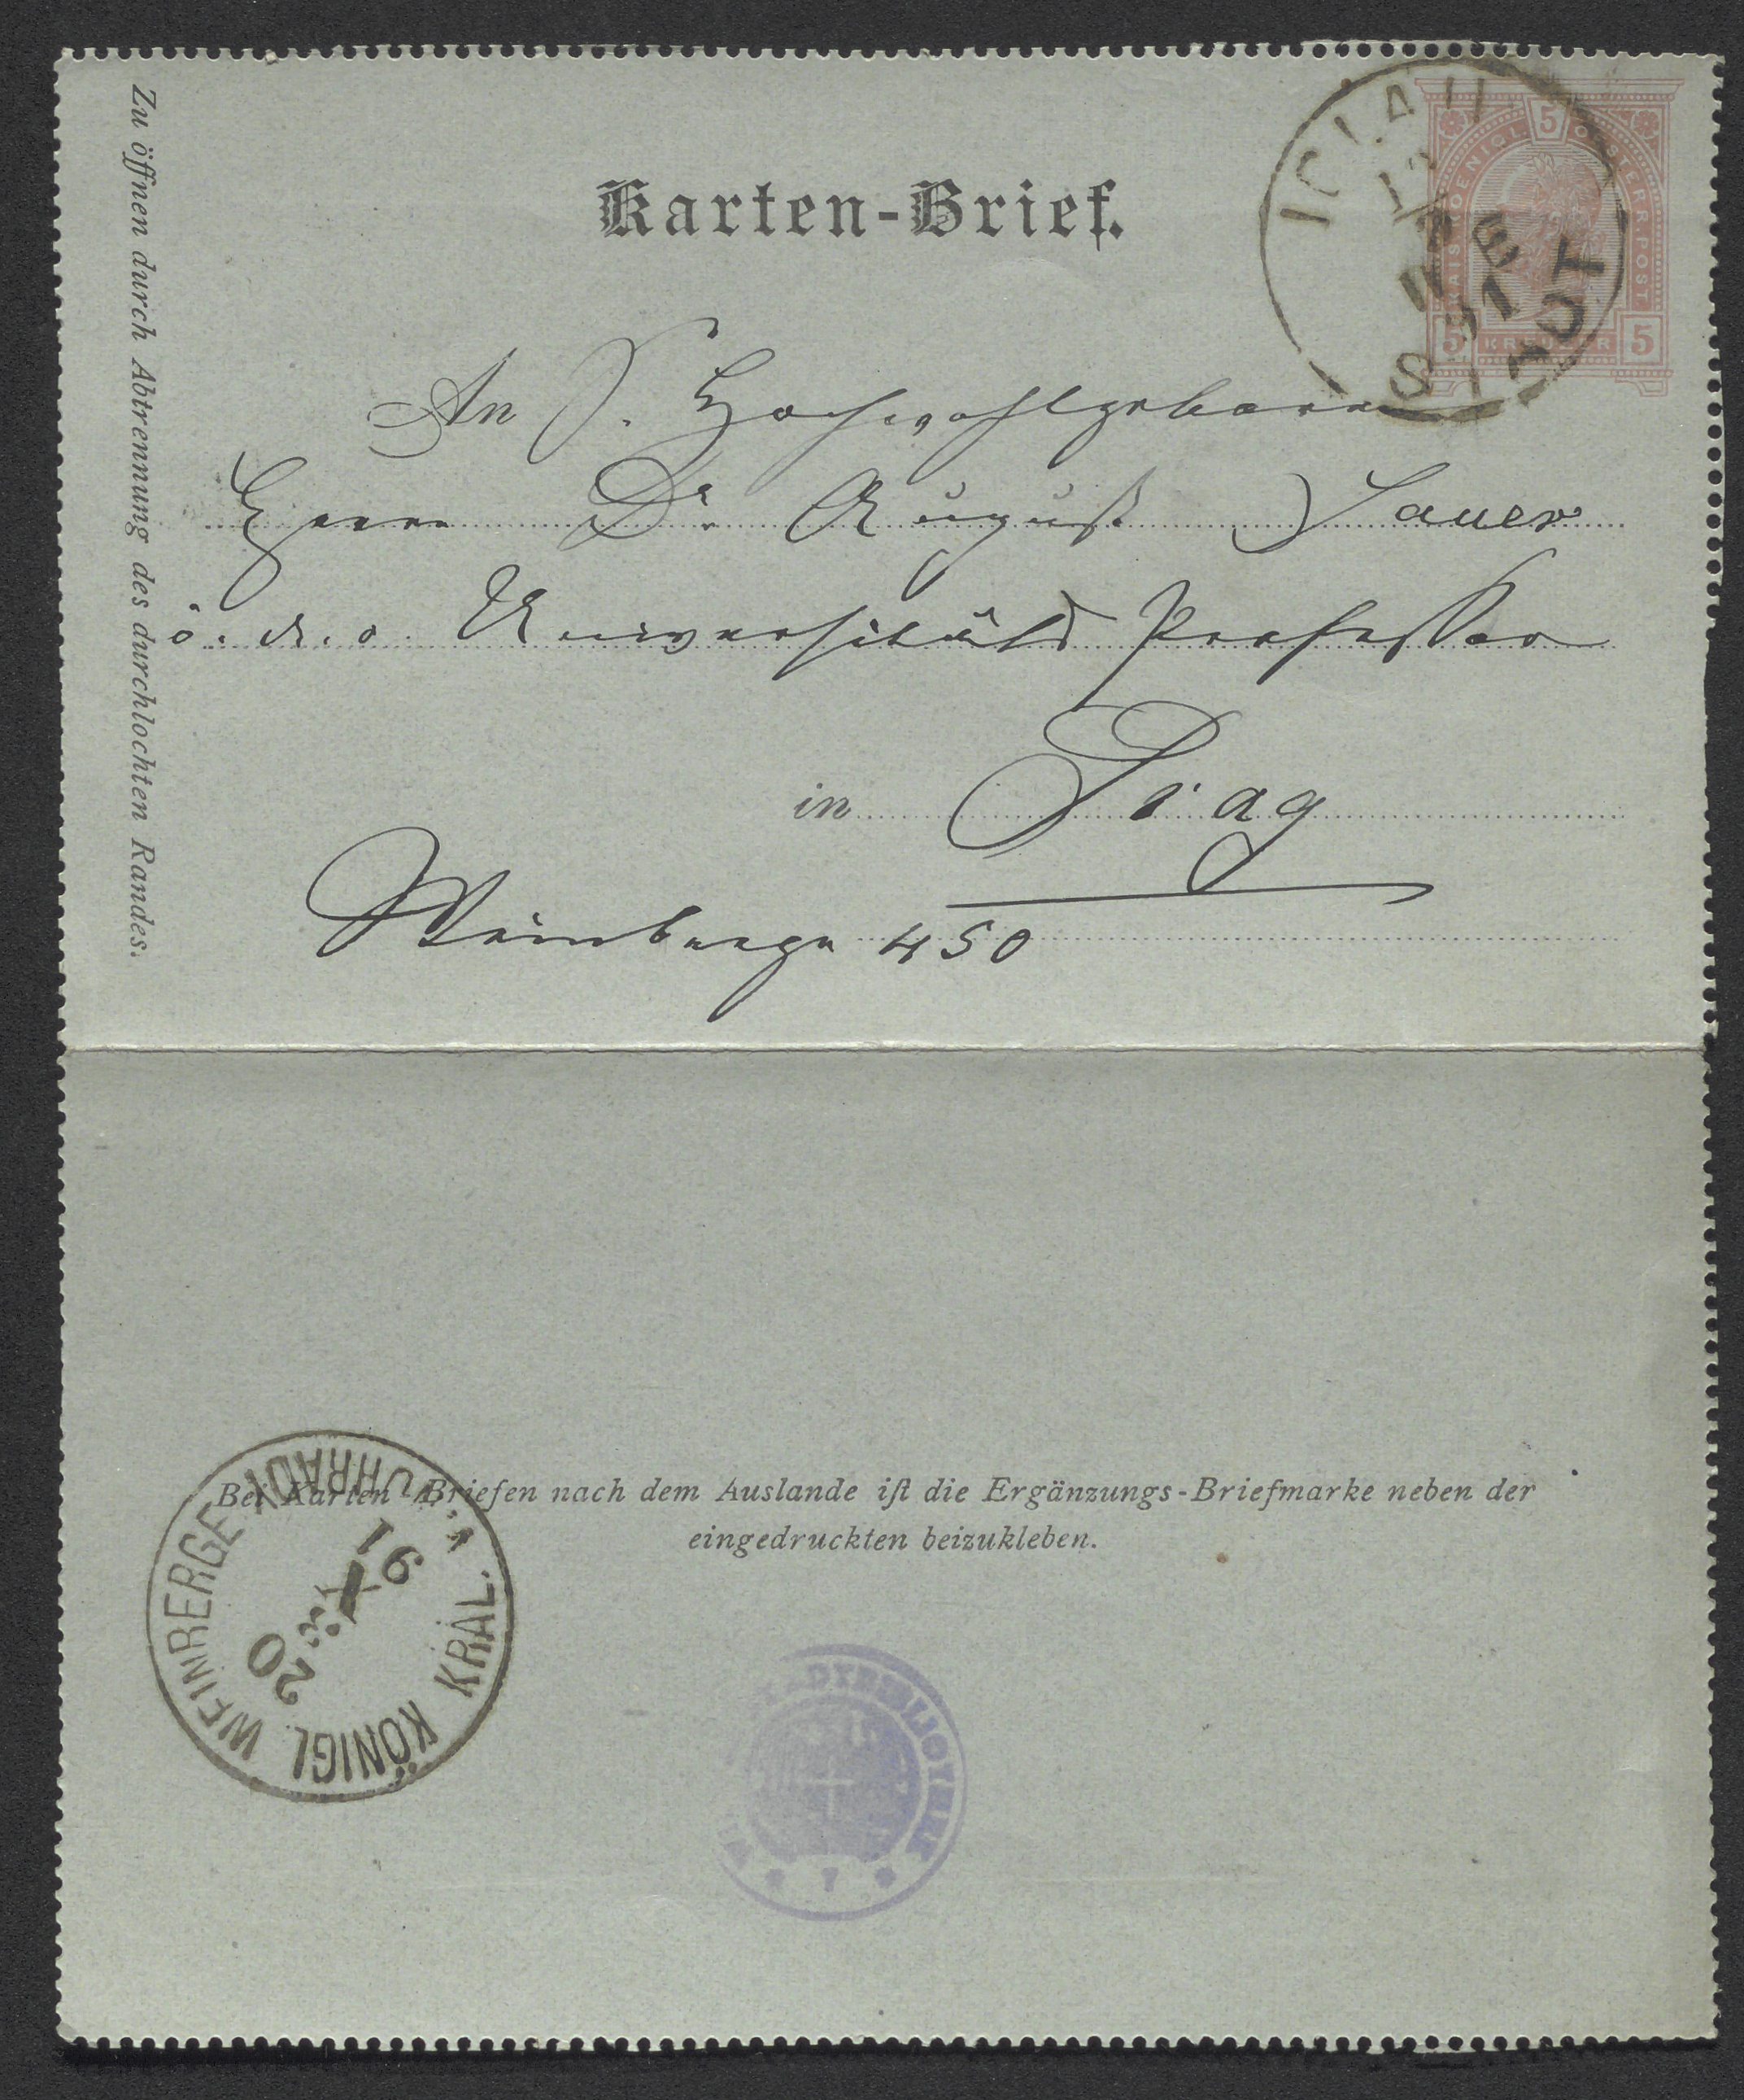 Karten-Brief.
Zu öffnen durch Abtrennung des durchlochten Randes.
IGLAU
STADT
KAIS KOENIGL OESTERR. POST
5
5 KREUZER 5
An S. Hochwohlgeboren
Herrn Dr August Sauer
ö. a. o. Universitäts Professor
in Prag
Weinberge 450
Bei Karten-Briefen nach dem Auslande iſt die Ergänzungs-Briefmarke neben der
eingedruckten beizukleben.
KÖNIGL. WEINBERGE
KRÁL.
20
X
91